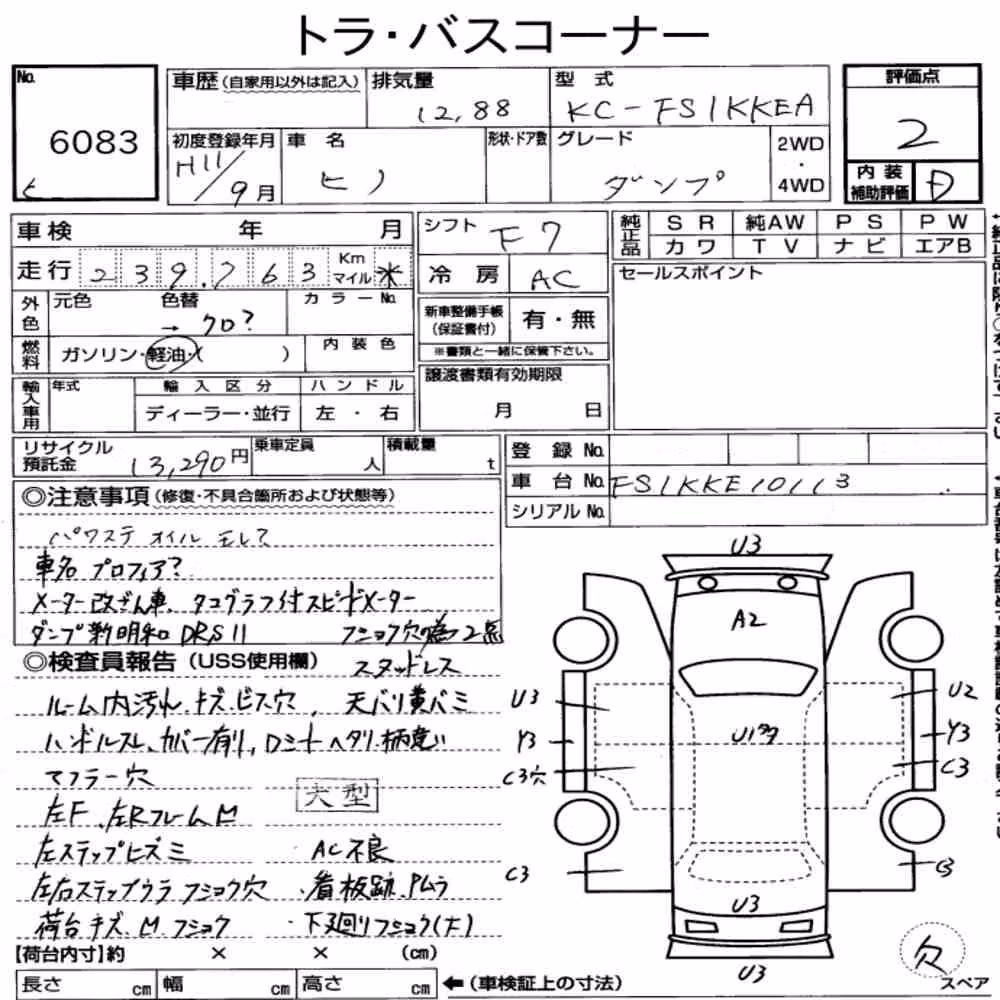 トラ・バスコーナー
No.
6083
ヒ
車歴（自家用以外は記入）
排気量
12,88
型式
KC-FS1KKEA
評価点
2
初度登録年月
H11/9月
車名
ヒノ
形状・ドア数
グレード
ダンプ
2WD
・
4WD
内装
補助評価
D
車検 年 月
走行 239,763 Km マイル ※
外色
元色 色替 → クロ?
カラーNo.
燃料
ガソリン・軽油・( )
内装色
輸入車用
年式
輸入区分
ディーラー・並行
ハンドル
左・右
シフト F7
冷房 AC
新車整備手帳
（保証書付）
有・無
※書類と一緒に保管下さい。
譲渡書類有効期限
月 日
純正品
SR 純AW PS PW
カワ TV ナビ エアB
セールスポイント
リサイクル
預託金 13,290円
乗車定員 人
積載量 t
登録No.
車台No. FS1KKE10113
シリアルNo.
◎注意事項（修復・不具合箇所および状態等）
パワステ オイル モレ?
車名 プロフィア?
メーター改ざん車、タコグラフ付スピードメーター
ダンプ新明和 DRS11 フショク穴 2点
◎検査員報告（USS使用欄） スタッドレス
ルーム内汚れ、キズ、ビス穴、天バリ黄バミ
ハンドルスレ、カバー有り、Dシートヘタリ・柄違い
マフラー穴
大型
左F、左Rフレーム M
左ステップヒズミ AC不良
左右ステップウラ フショク穴・看板跡、Pムラ
荷台 キズ、M フショク ・下廻りフショク(大)
【荷台内寸】約 × × （cm）
長さ cm 幅 cm 高さ cm ←（車検証上の寸法）
U3
A2
U3
U2
Y3
Y3
C3穴
C3
C3
C3
U3
U3
欠
スペア